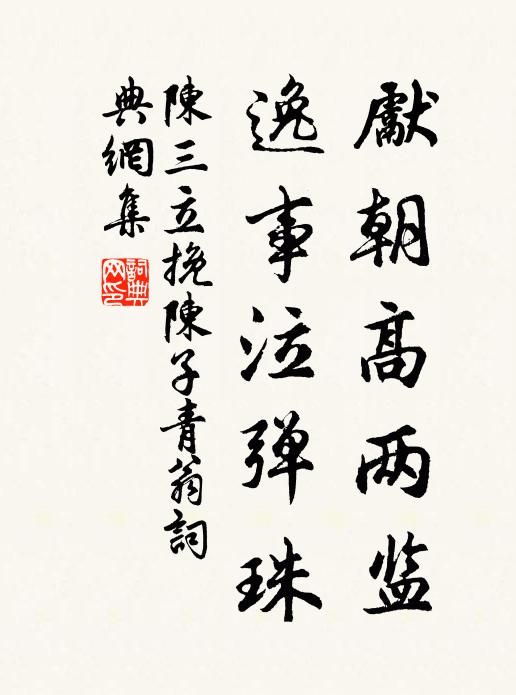 獻朝高两监
逸事泣弹珠
陳三立挽陳子青翁詞
典網集
詞典
网印